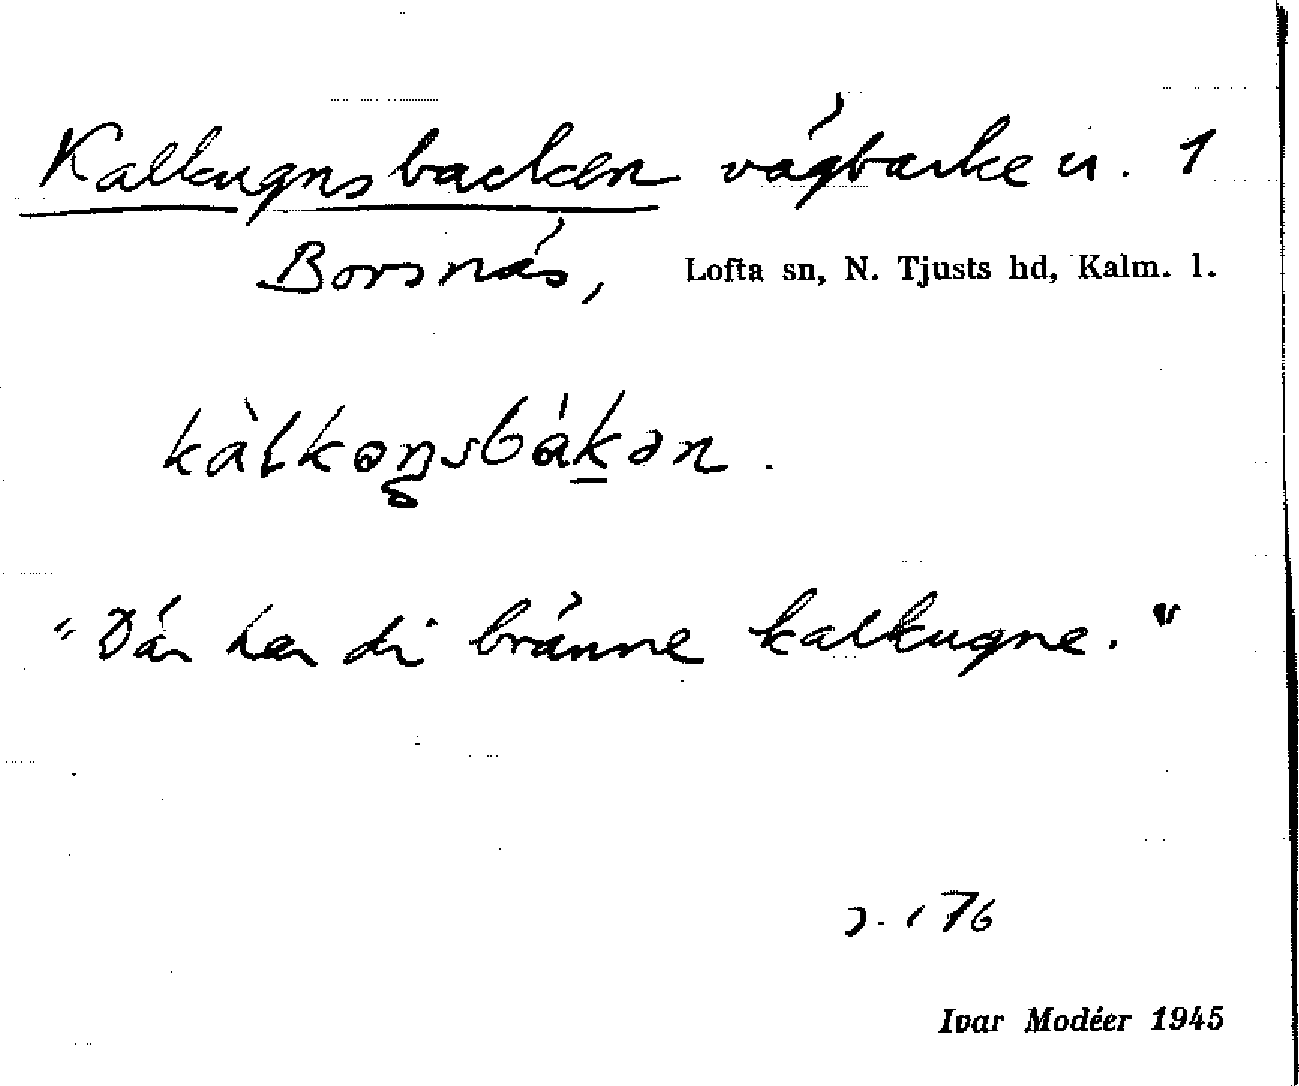 Kalkugnsbacken vägbacke u. 1
Borsnäs, Lofta sn, N. Tjusts hd, Kalm. l.
kàlkəŋsbákən.
"Där har di bränne kalkugne."
s. 176
Ivar Modéer 1945